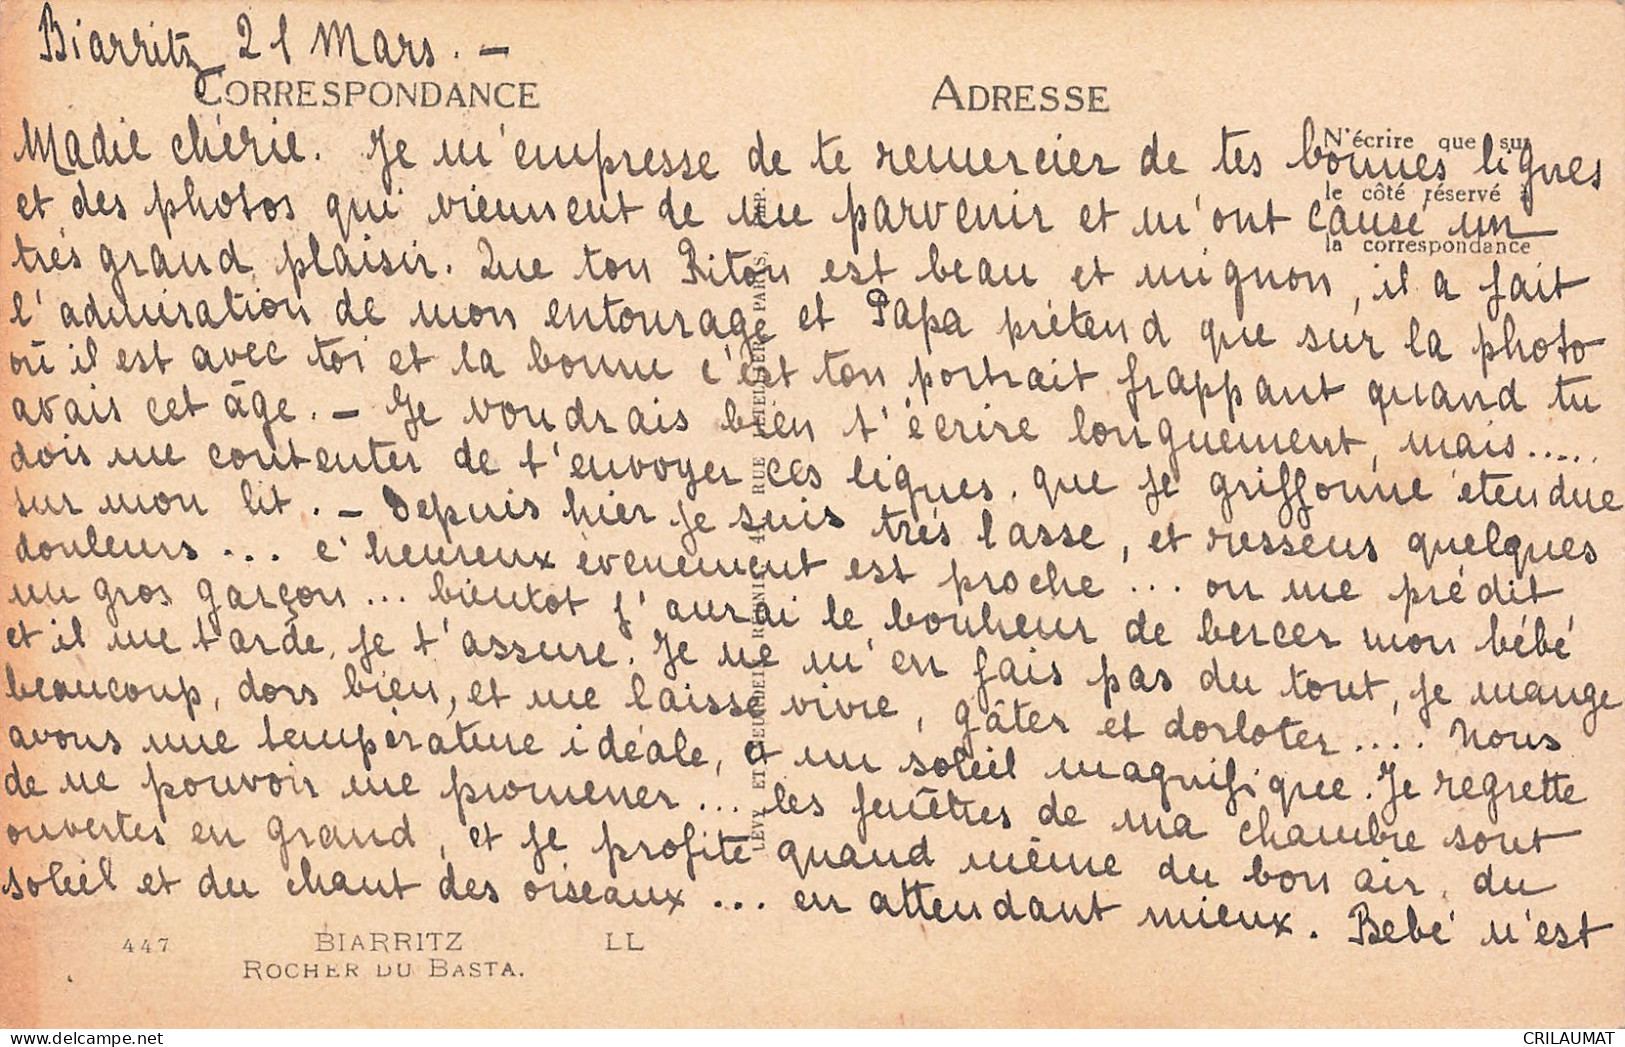 Biarritz 21 Mars. –
CORRESPONDANCE
ADRESSE
N'écrire que sur
le côté réservé à
la correspondance
Madie chérie. Je m'empresse de te remercier de tes bonnes lignes
et des photos qui viennent de me parvenir et m'ont causé un
très grand plaisir. Que ton Riton est beau et mignon, il a fait
l'admiration de mon entourage et Papa prétend que sur la photo
où il est avec toi et la bonne c'est ton portrait frappant quand tu
avais cet âge. – Je voudrais bien t'écrire longuement, mais.....
dois me contenter de t'envoyer ces lignes. que je griffonne étendue
sur mon lit. – Depuis hier je suis très lasse, et ressens quelques
douleurs ... l'heureux évènement est proche ... on me prédit
un gros garçon ... bientôt j'aurai le bonheur de bercer mon bébé
et il me tarde, je t'assure. Je ne m'en fais pas du tout, je mange
beaucoup, dors bien, et me laisse vivre, gâter et dorloter .... Nous
avons une température idéale, et un soleil magnifique. Je regrette
de ne pouvoir me promener ... les fenêtres de ma chambre sont
ouvertes en grand, et je profite quand même du bon air, du
soleil et du chant des oiseaux ... en attendant mieux. Bébé n'est
447
BIARRITZ
LL
ROCHER DU BASTA.
CRILAUMAT